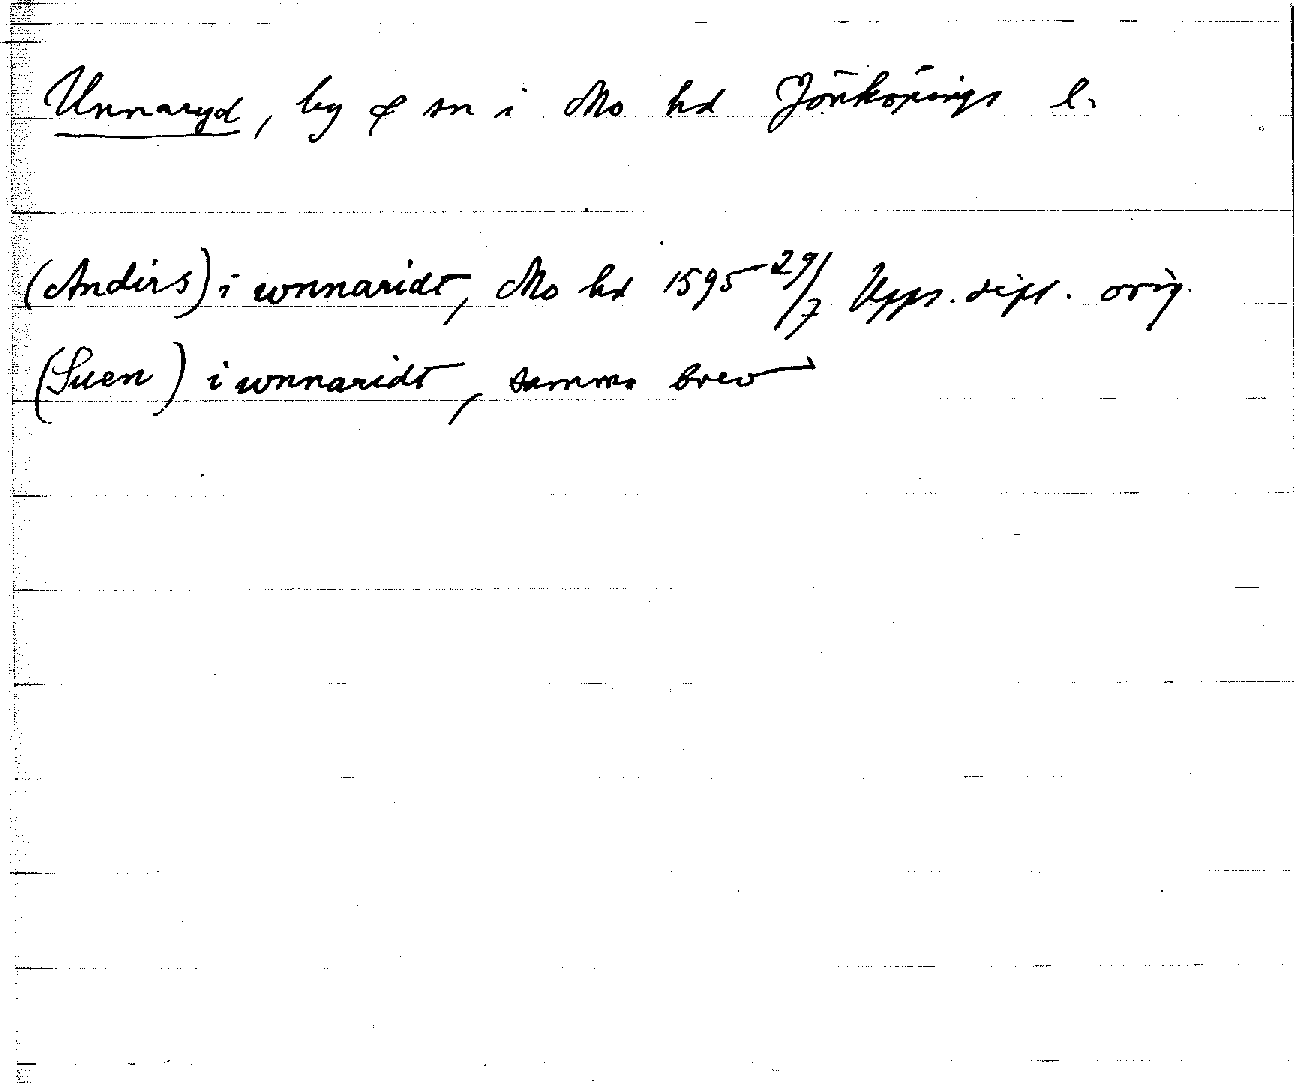 Unnaryd, by & sn i Mo hd Jönköpings l.
(Anders) i wnnaridt, Mo hd 1595 29/7 Upps. dipl. orig.
(Suen) i wnnaridt, samma brev